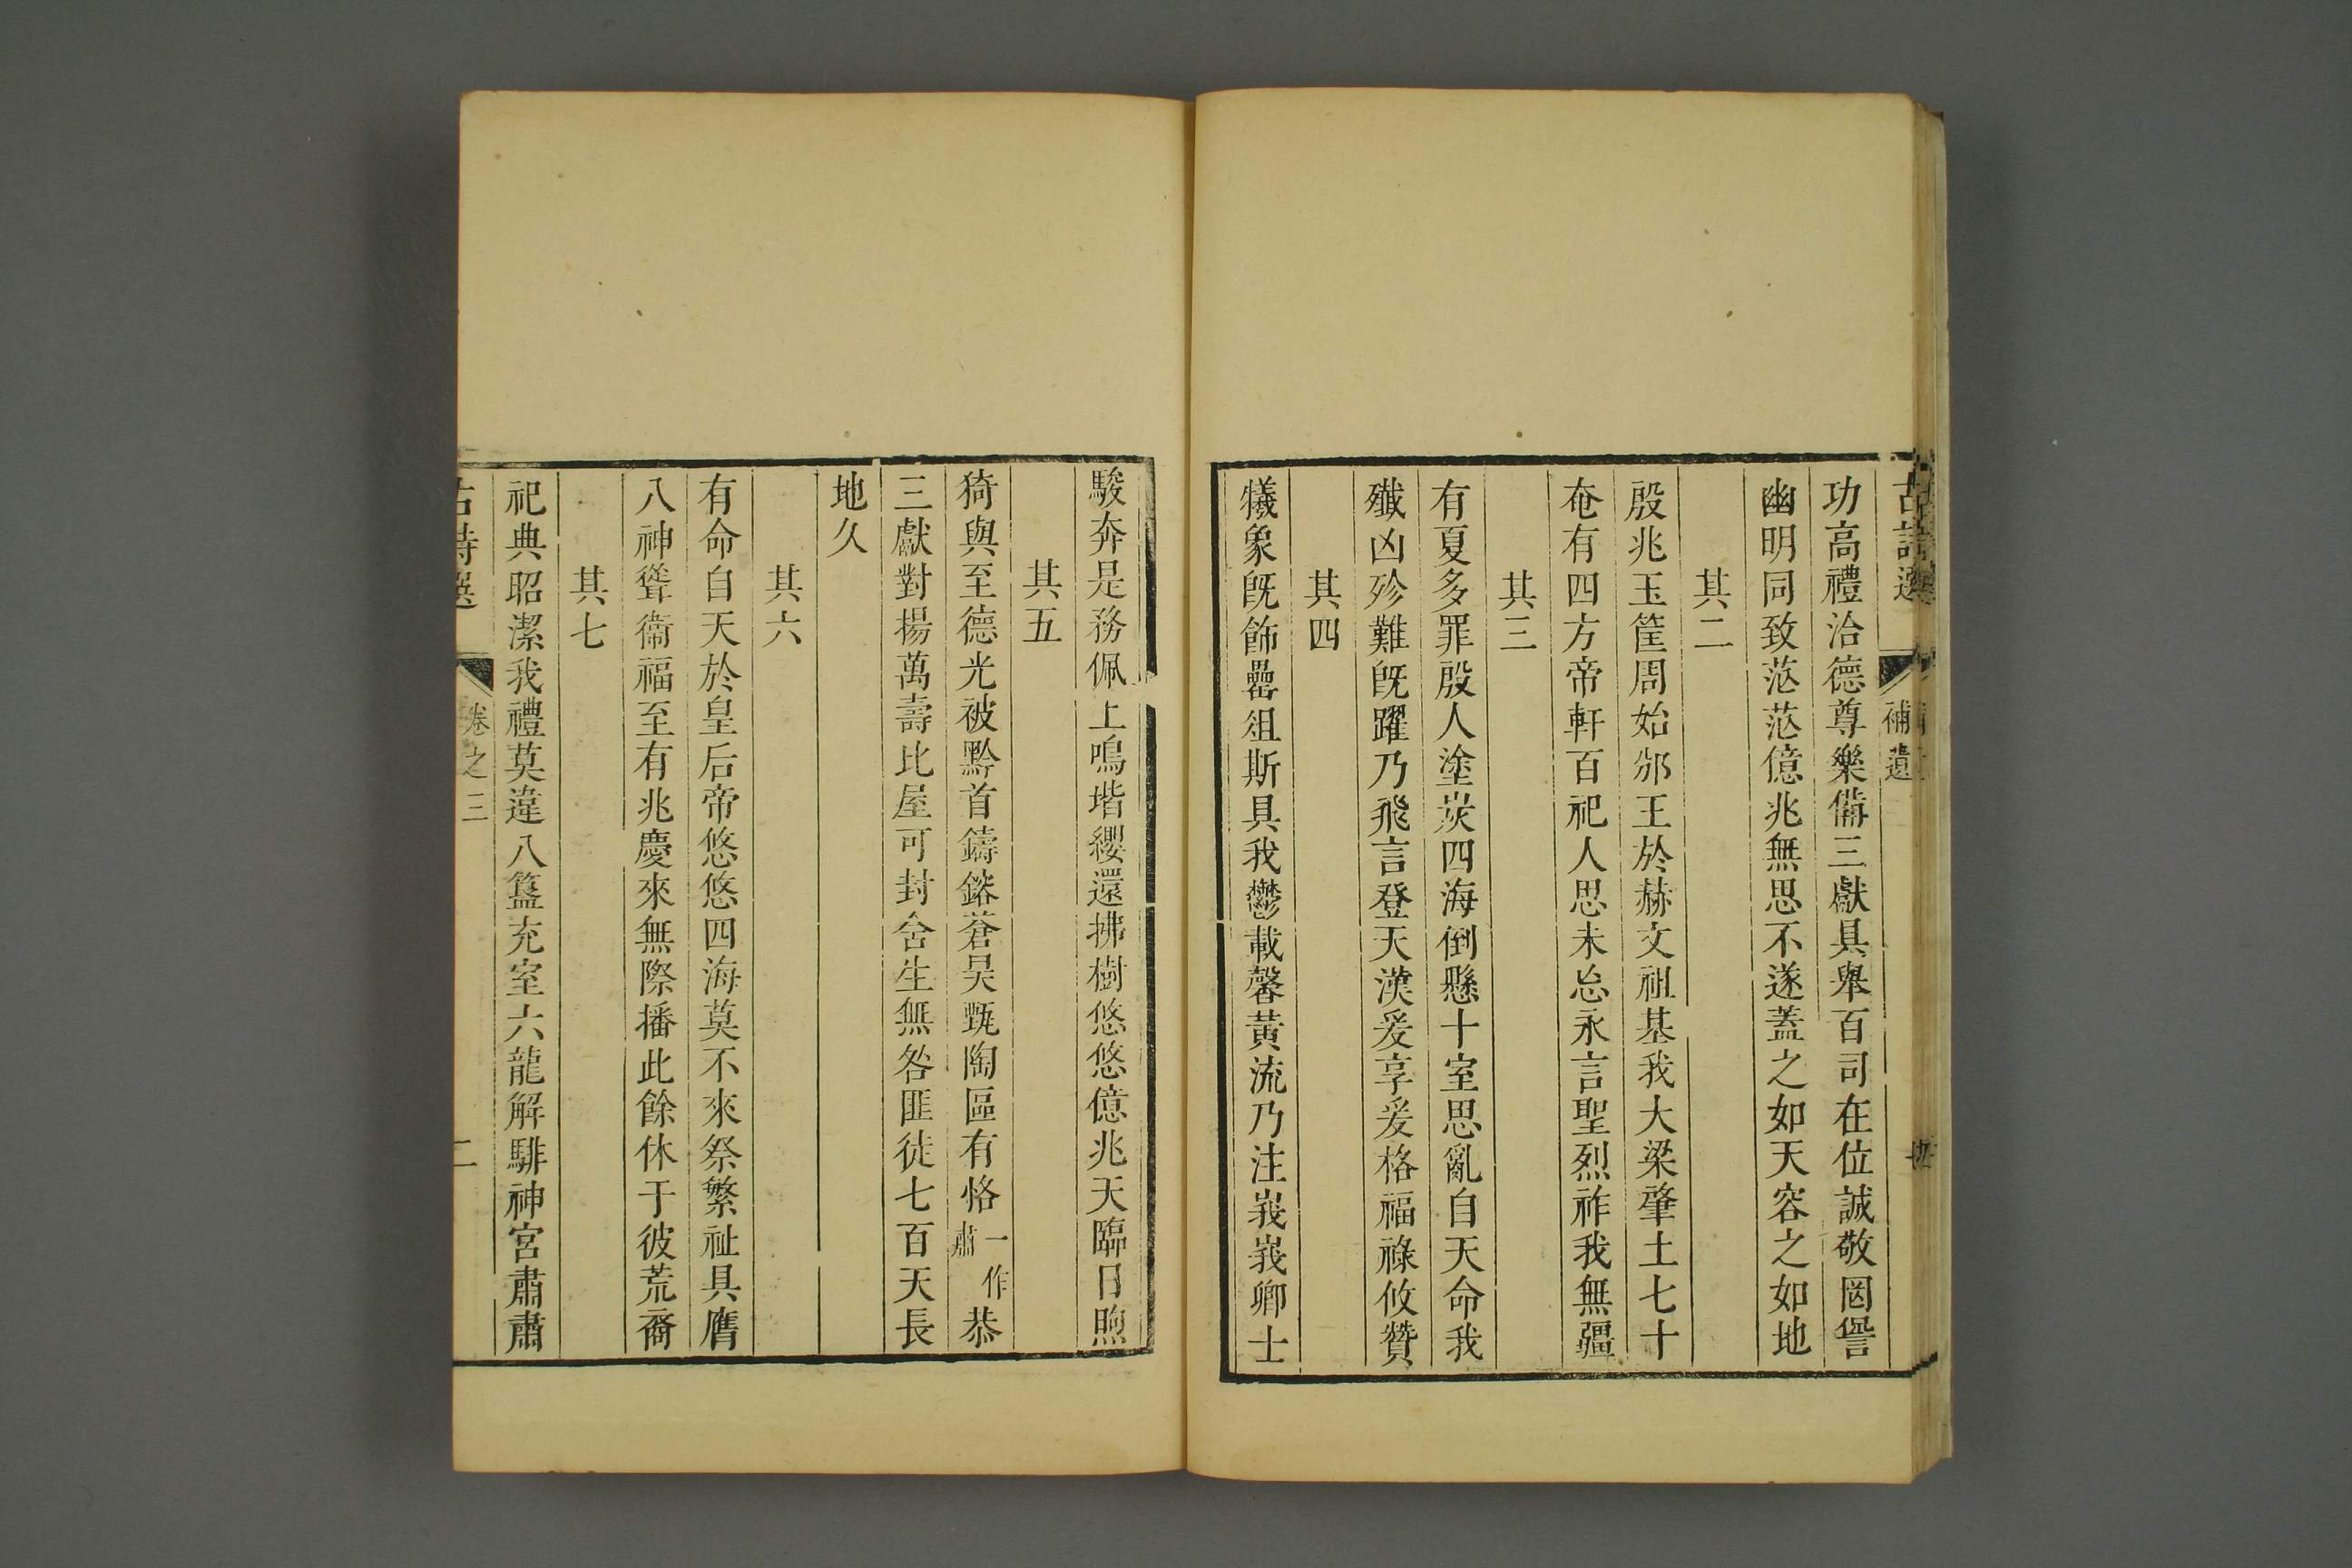 古詩選
補遺
功高禮洽德尊樂備三獻具舉百司在位誠敬罔諐
幽明同致茫茫億兆無思不遂蓋之如天容之如地
其二
殷兆玉筐周始邠王於赫文祖基我大梁肇土七十
奄有四方帝軒百祀人思未忘永言聖烈祚我無疆
其三
有夏多罪殷人塗炭四海倒懸十室思亂自天命我
殲凶殄難旣躍乃飛言登天漢爰享爰格福祿攸贊
其四
犧象旣飾罍俎斯具我鬱載馨黃流乃注峩峩卿士
駿奔是務佩上鳴堦纓還拂樹悠悠億兆天臨日煦
其五
猗與至德光被黔首鑄鎔蒼昊甄陶區有恪一作肅恭
三獻對揚萬壽比屋可封含生無咎匪徒七百天長
地久
其六
有命自天於皇后帝悠悠四海莫不來祭繁祉具膺
八神聳衞福至有兆慶來無際播此餘休于彼荒裔
其七
祀典昭潔我禮莫違八簋充室六龍解騑神宮肅肅
古詩選
卷之三
二